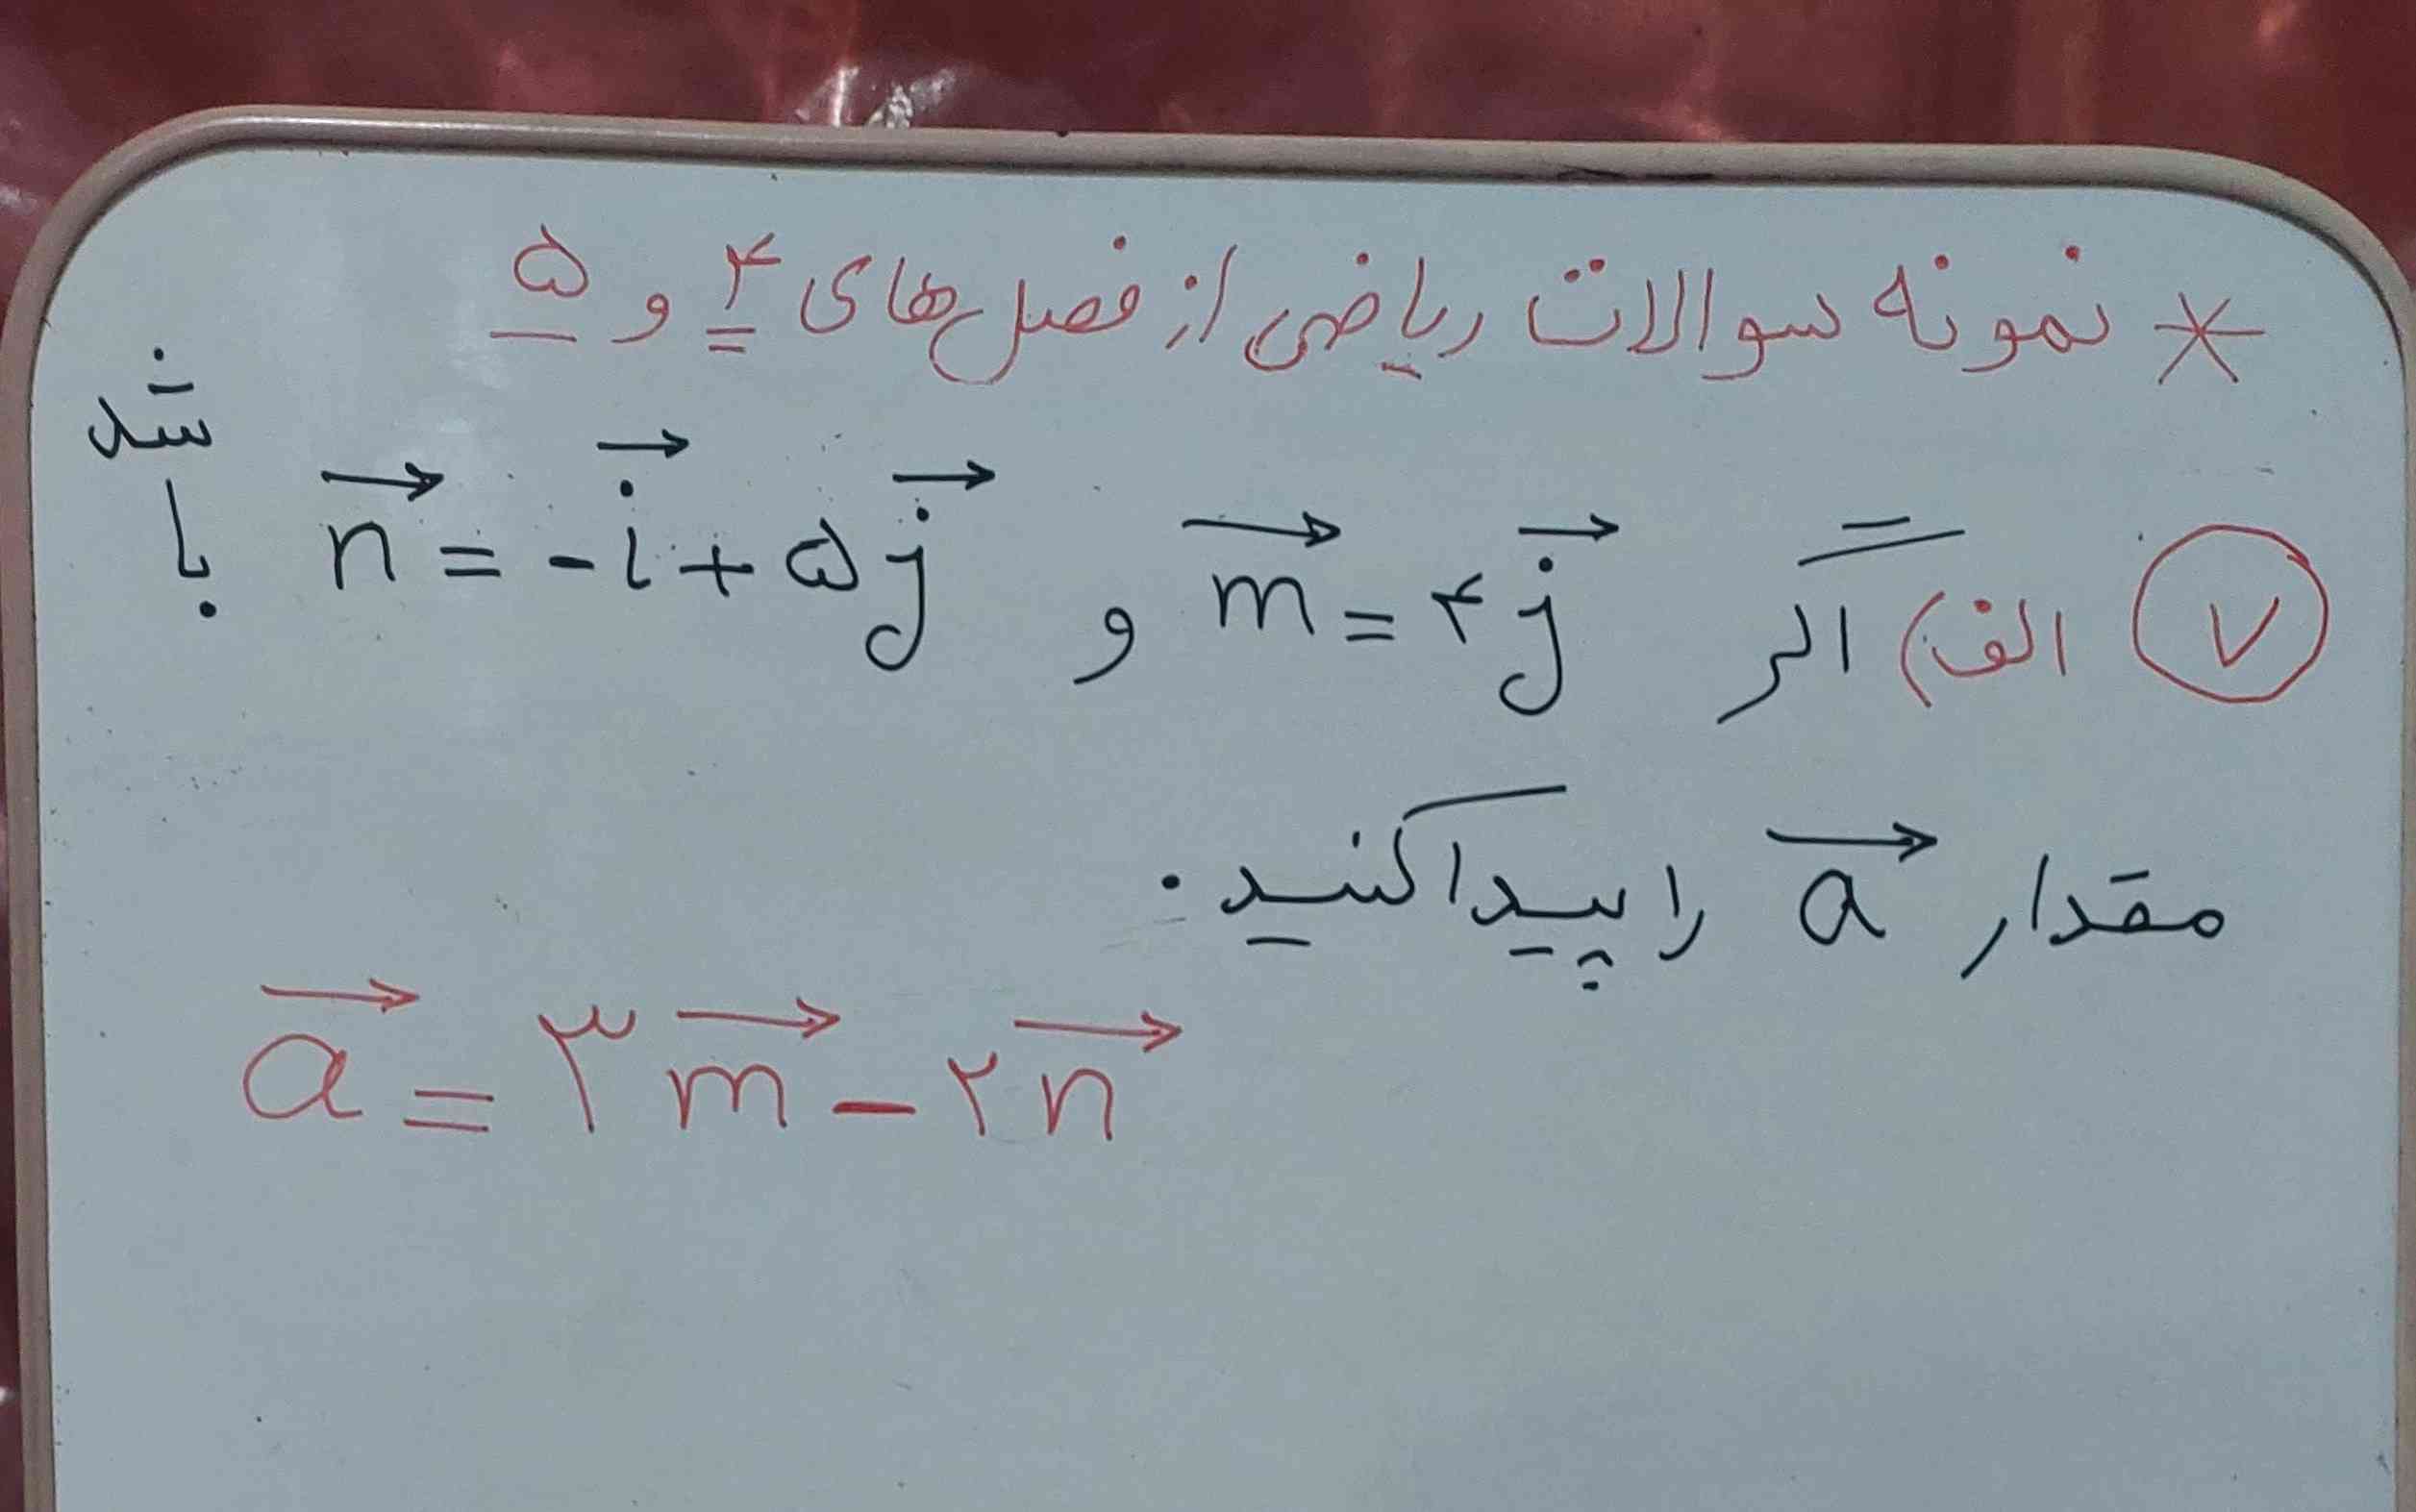 * نمونه سوالات ریاضی از فصل‌های ۴ و ۵
۷ الف) اگر m⃗ = ۴j⃗ و n⃗ = -i⃗ + ۵j⃗ باشد
مقدار a⃗ را پیدا کنید.
a⃗ = ۳m⃗ - ۲n⃗